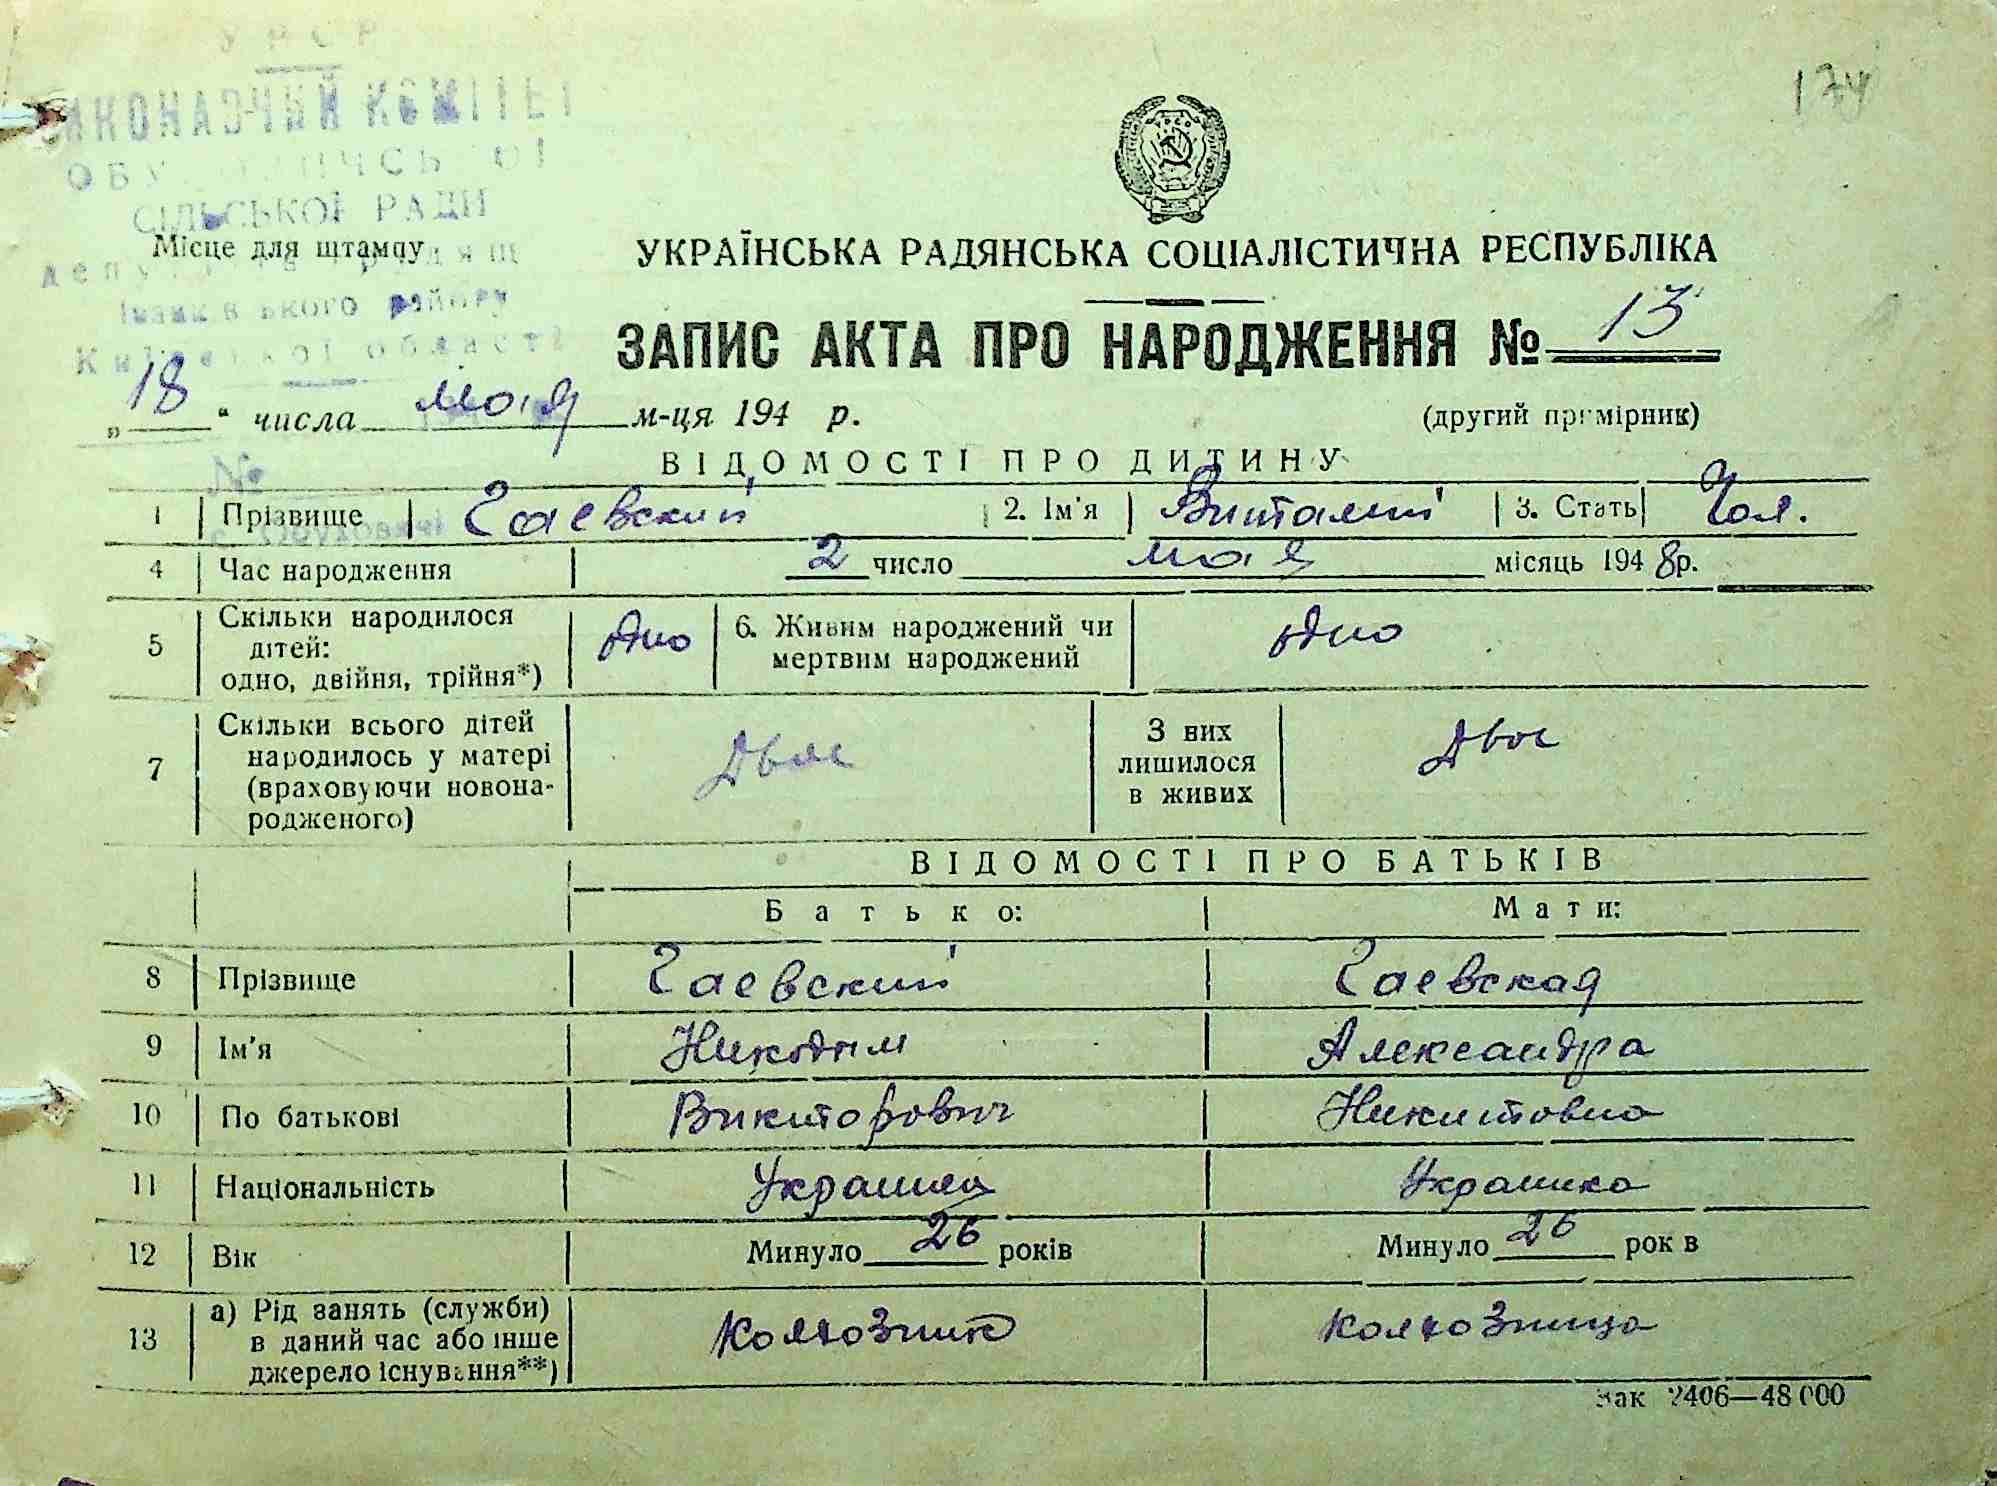 УРСР
ВИКОНАВЧИЙ КОМІТЕТ
СІЛЬСЬКОЇ РАДИ
Місце для штампу
Іванківського району
Київської області
174
УКРАЇНСЬКА РАДЯНСЬКА СОЦІАЛІСТИЧНА РЕСПУБЛІКА
ЗАПИС АКТА ПРО НАРОДЖЕННЯ № 13
„18“ числа мая м-ця 194 р. (другий примірник)
№
ВІДОМОСТІ ПРО ДИТИНУ
1 Прізвище Гаевский 2. Ім'я Виталий 3. Стать Чол.
4 Час народження 2 число мая місяць 1948р.
5 Скільки народилося дітей: одно, двійня, трійня*) одно 6. Живим народжений чи мертвим народжений одно
7 Скільки всього дітей народилось у матері (враховуючи новонародженого) Двое З них лишилося в живих Двое
ВІДОМОСТІ ПРО БАТЬКІВ
Батько: Мати:
8 Прізвище Гаевский Гаевская
9 Ім'я Никодим Александра
10 По батькові Викторович Никитовна
11 Національність Украинец Украинка
12 Вік Минуло 26 років Минуло 26 рок в
13 а) Рід занять (служби) в даний час або інше джерело існування**) Колхозник Колхозница
Зак 2406—48000